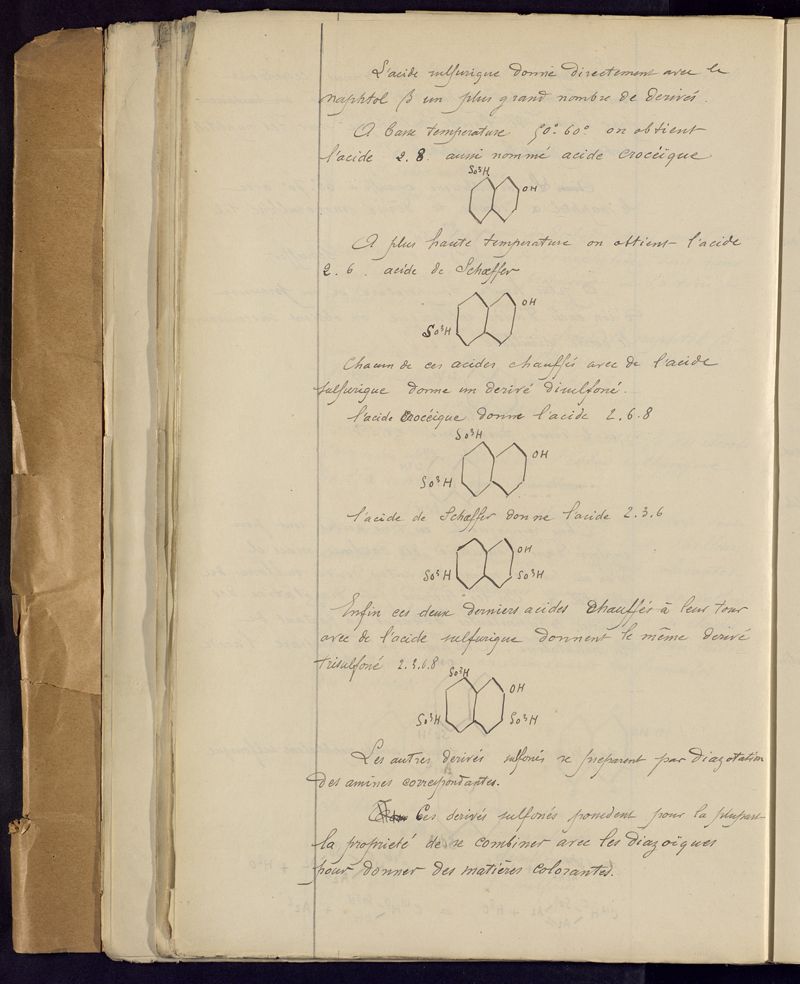 L'acide sulfurique donne directement avec le
naphtol β un plus grand nombre de derivés.
A basse temperature 50°-60° on obtient
l'acide 2.8. aussi nommé acide crocéique
So³H
OH
A plus haute temperature on obtient l'acide
2.6. acide de Schæffer
OH
So³H
Chacun de ces acides chauffés avec de l'acide
sulfurique donne un derivé disulfoné.
l'acide crocéique donne l'acide 2.6.8
So³H
OH
So³H
l'acide de Schæffer donne l'acide 2.3.6
OH
So³H So³H
Enfin ces deux derniers acides chauffés à leur tour
avec de l'acide sulfurique donnent le même derivé
trisulfoné 2.3.6.8
So³H
OH
So³H So³H
Les autres derivés sulfonés se preparent par diazotation
des amines correspondantes.
Ces derivés sulfonés possedent pour la plupart
la propriété de se combiner avec les diazoïques
pour donner des matières colorantes.